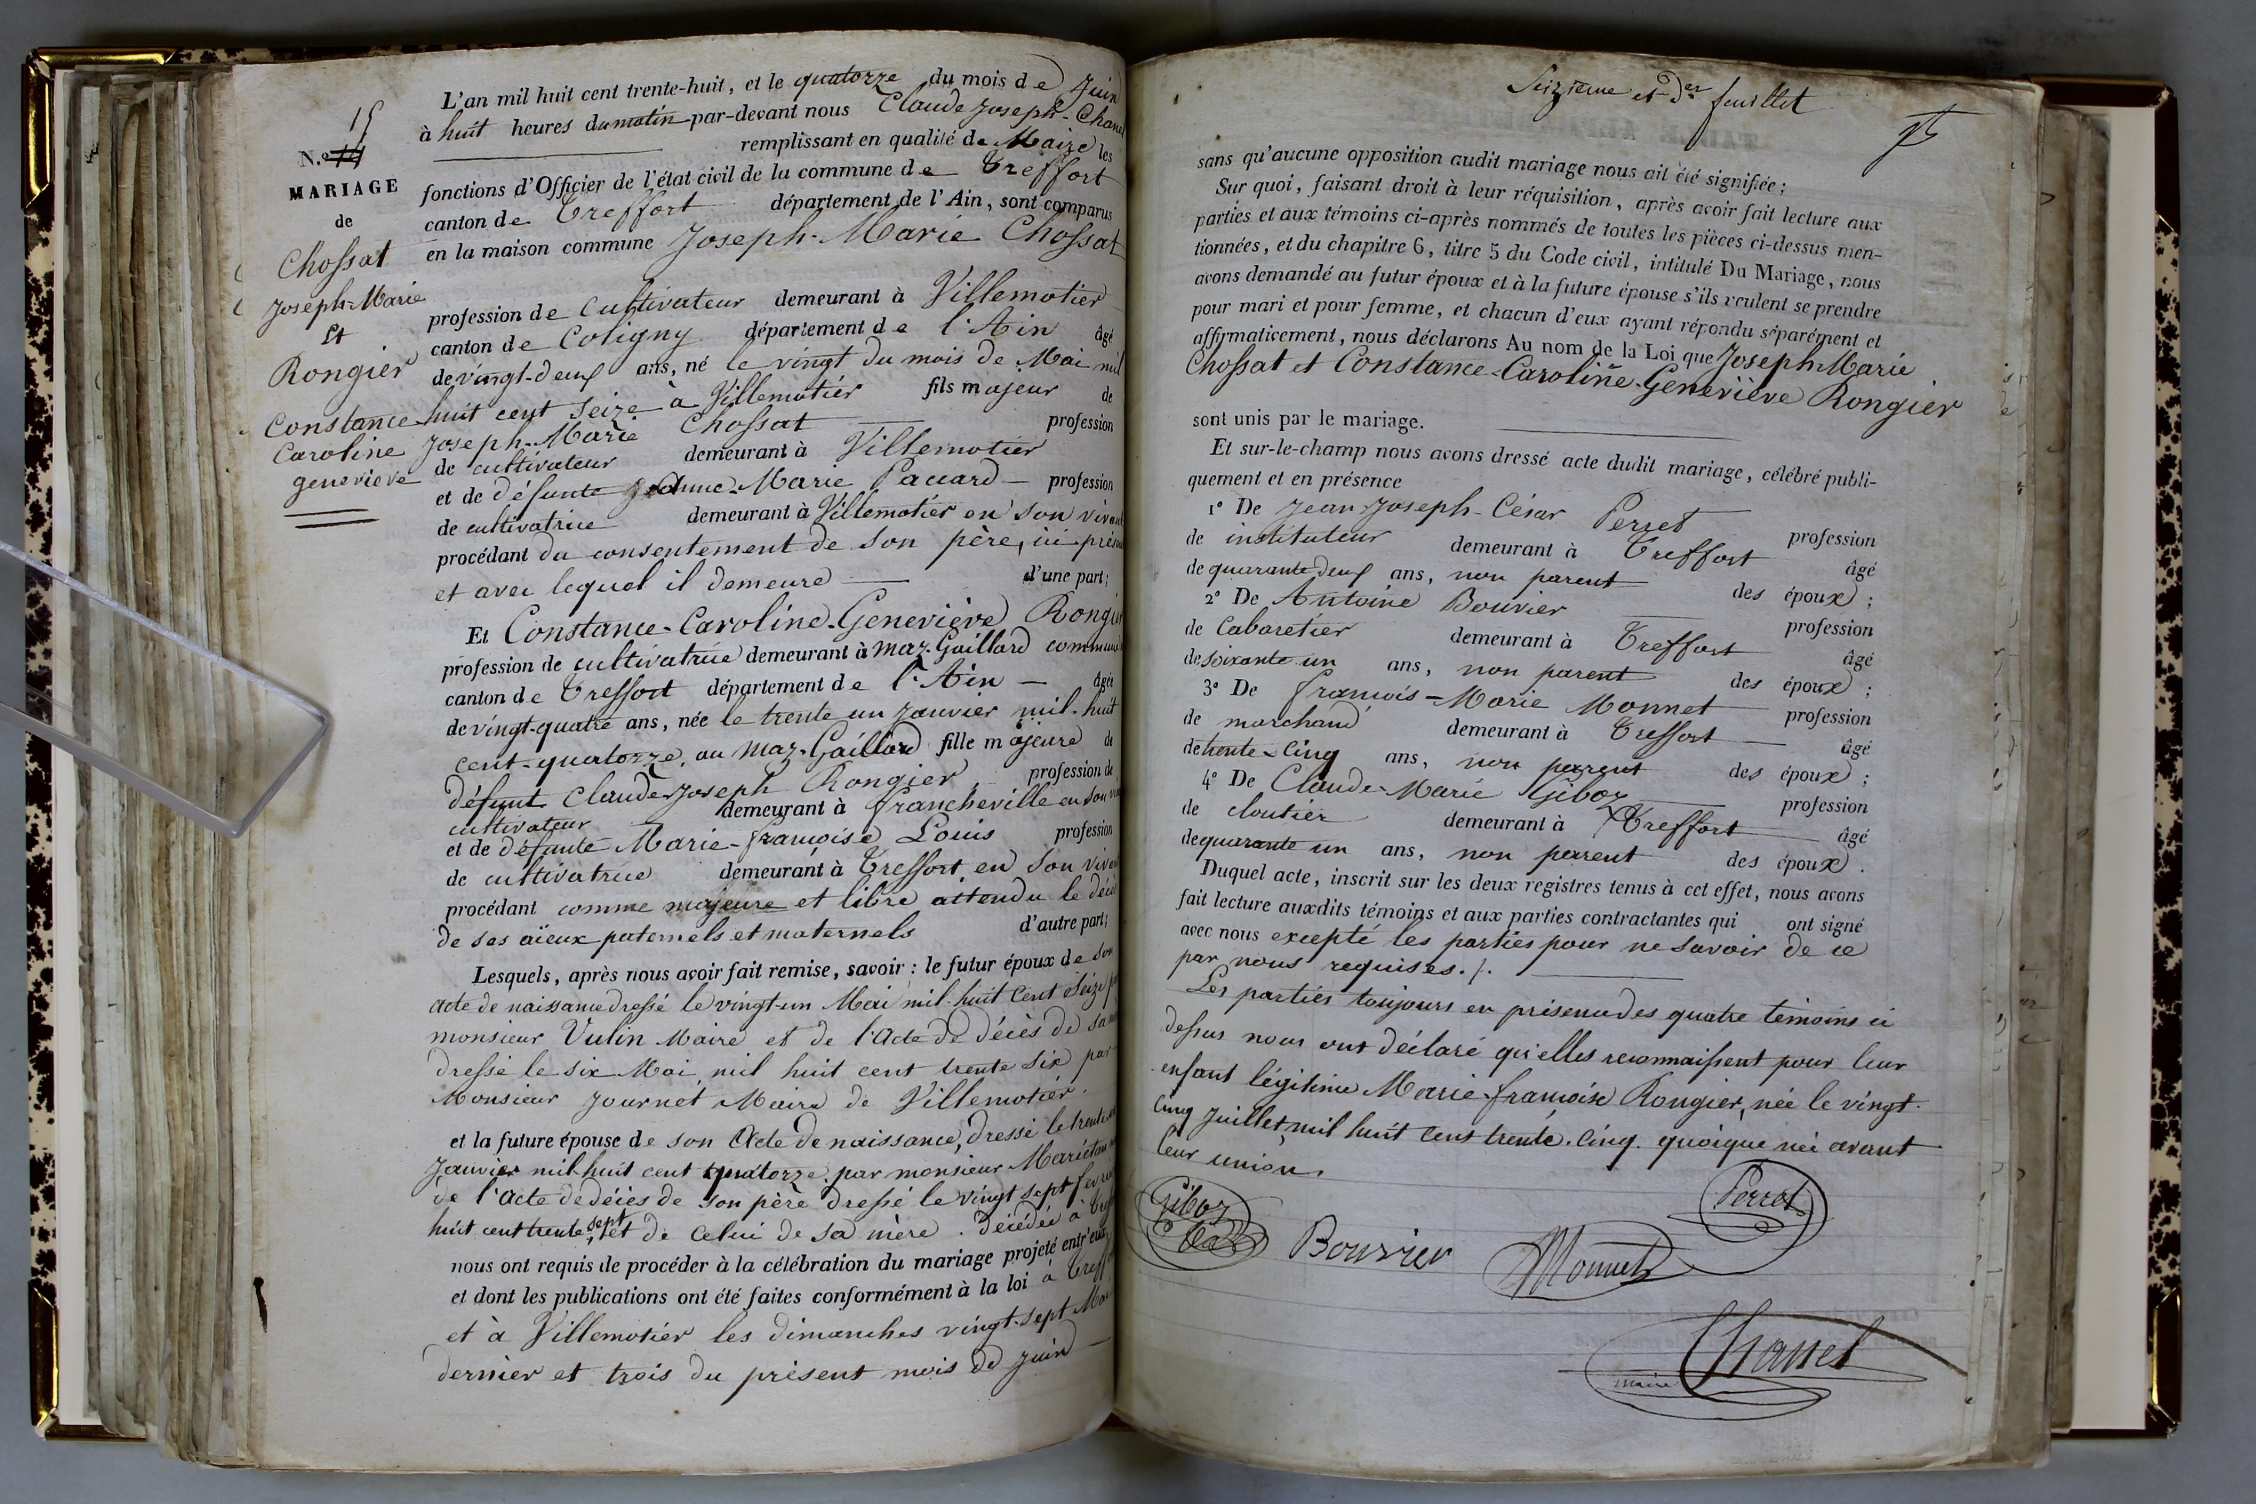 15
N.° 14
MARIAGE
de
Chossat
Joseph-Marie
Et
Rongier
Constance
Caroline
genevieve
L'an mil huit cent trente-huit, et le quatorze du mois de Juin
à huit heures du matin par-devant nous Claude Joseph Chanel
remplissant en qualité de Maire les
fonctions d'Officier de l'état civil de la commune de Treffort
canton de Treffort département de l'Ain, sont comparus
en la maison commune Joseph-Marie Chossat
profession de Cultivateur demeurant à Villemotier
canton de Coligny département de l'Ain âgé
de vingt-deux ans, né le vingt du mois de Mai mil
huit cent seize à Villemotier fils majeur de
Joseph-Marie Chossat profession
de cultivateur demeurant à Villemotier
et de défunte Jeanne-Marie Paccard profession
de cultivatrice demeurant à Villemotier en son vivant
procédant du consentement de son père, ici présent
et avec lequel il demeure d'une part;
Et Constance-Caroline-Geneviève Rongier
profession de cultivatrice demeurant à maz-Gaillard commune
canton de Treffort département de l'Ain âgée
de vingt-quatre ans, née le trente un janvier mil-huit
cent-quatorze, au maz-Gaillard fille majeure de
défunt Claude-Joseph Rongier profession de
cultivateur demeurant à francheville en son
et de défunte Marie-françoise Louis profession
de cultivatrice demeurant à Treffort en son vivant
procédant comme majeure et libre attendu le décès
de ses aïeux paternels et maternels d'autre part;
Lesquels, après nous avoir fait remise, savoir: le futur époux de son
acte de naissance dressé le vingt-un Mai mil-huit cent seize par
monsieur Vulin Maire et de l'acte de décès de sa
dressé le six Mai mil huit cent trente six par
Monsieur Journet Maire de Villemotier.
et la future épouse de son Acte de naissance, dressé le trente
Janvier mil-huit cent quatorze par monsieur Mariétan
de l'acte de décès de son père dressé le vingt sept fevrier
huit cent trente sept, et de celui de sa mère. décédée à
nous ont requis de procéder à la célébration du mariage projeté entr'eux
et dont les publications ont été faites conformément à la loi à Treffort
et à Villemotier les dimanches vingt-sept Mai
dernier et trois du présent mois de juin
Seizieme et der feuillet
sans qu'aucune opposition audit mariage nous ait été signifiée;
Sur quoi, faisant droit à leur réquisition, après avoir fait lecture aux
parties et aux témoins ci-après nommés de toutes les pièces ci-dessus men-
tionnées, et du chapitre 6, titre 5 du Code civil, intitulé Du Mariage, nous
avons demandé au futur époux et à la future épouse s'ils veulent se prendre
pour mari et pour femme, et chacun d'eux ayant répondu séparément et
affirmativement, nous déclarons Au nom de la Loi que Joseph Marie
Chossat et Constance-Caroline-Geneviève Rongier
sont unis par le mariage.
Et sur-le-champ nous avons dressé acte dudit mariage, célébré publi-
quement et en présence
1° De Jean Joseph-César Perret profession
de instituteur demeurant à Treffort âgé
de quarante deux ans, non parent des époux;
2° De Antoine Bouvier profession
de Cabaretier demeurant à Treffort âgé
de soixante un ans, non parent des époux;
3° De françois-Marie Monnet profession
de marchand demeurant à Treffort âgé
de trente-cinq ans, non parent des époux;
4° De Claude-Marie Giboz profession
de cloutier demeurant à Treffort âgé
de quarante un ans, non parent des époux.
Duquel acte, inscrit sur les deux registres tenus à cet effet, nous avons
fait lecture auxdits témoins et aux parties contractantes qui ont signé
avec nous excepté les parties pour ne savoir de ce
par nous requises./.
Les parties toujours en présence des quatre témoins ci
dessus nous ont déclaré qu'elles reconnaissent pour leur
enfant légitime Marie-françoise Rongier, née le vingt-
cinq Juillet mil huit cent trente-cinq. quoique née avant
leur union.
Giboz
Perret
Bouvier
Monnet
Chanel
maire